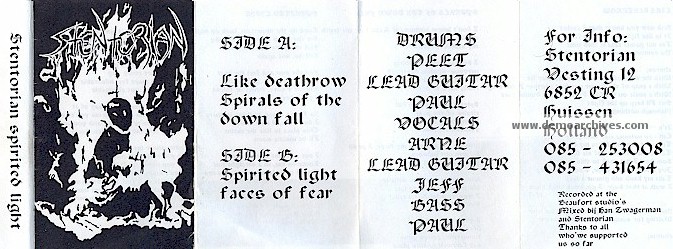 Stentorian spirited light
STENTORIAN
SIDE A:
Like deathrow
Spirals of the
down fall
SIDE B:
Spirited light
faces of fear
DRUMS
PEET
LEAD GUITAR
PAUL
VOCALS
ARNE
LEAD GUITAR
JEFF
BASS
PAUL
For Info:
Stentorian
Vesting 12
6852 CR
Huissen
www.demoarchives.com
Holland
085 - 253008
085 - 431654
Recorded at the
Beaufort studio's
Mixed bij Han Zwagerman
and Stentorian
Thanks to all
who've supported
us so far